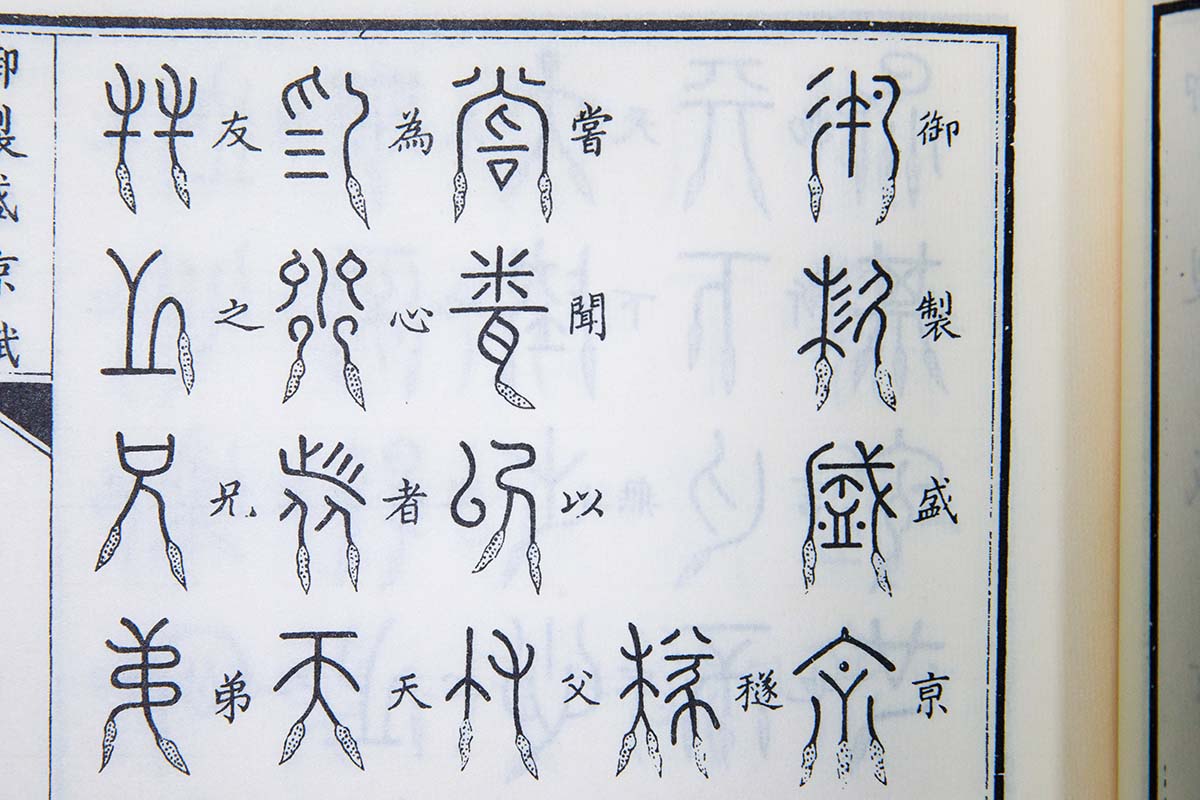 御製盛京
穟
嘗聞以父
為心者天
友之兄弟
御製盛京賦